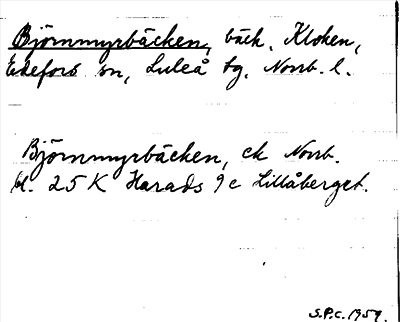 Björnmyrbäcken, bäck, Kloken,
Edefors sn, Luleå tg, Norrb. l.
Björnmyrbäcken, ek Norrb.
bl. 25 K Harads 9c Lillåberget.
S.P.C. 1959.